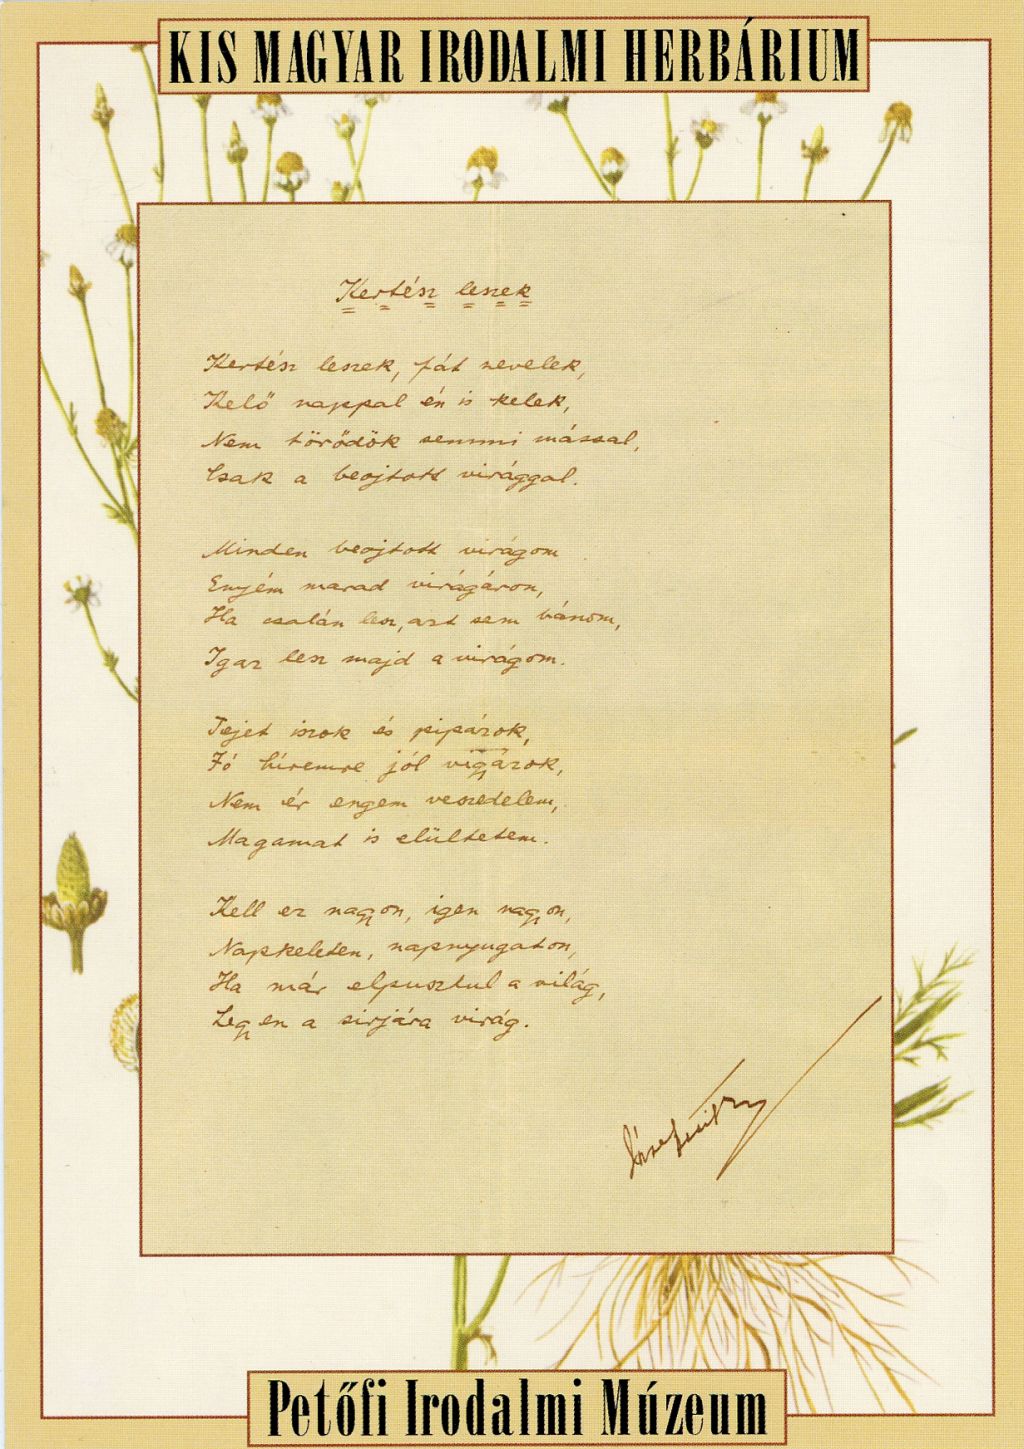 KIS MAGYAR IRODALMI HERBÁRIUM
Kertész leszek
Kertész leszek, fát nevelek,
Kelő nappal én is kelek,
Nem törődök semmi mással,
Csak a beojtott virággal.
Minden beojtott virágom
Enyém marad virágáron,
Ha csalán lesz, azt sem bánom,
Igaz lesz majd a virágom.
Tejet iszok és pipázok,
Jó híremre jól vigyázok,
Nem ér engem veszedelem,
Magamat is elültetem.
Kell ez nagyon, igen nagyon,
Napkeleten, napnyugaton,
Ha már elpusztul a világ,
Legyen a sirjára virág.
József Attila
Petőfi Irodalmi Múzeum